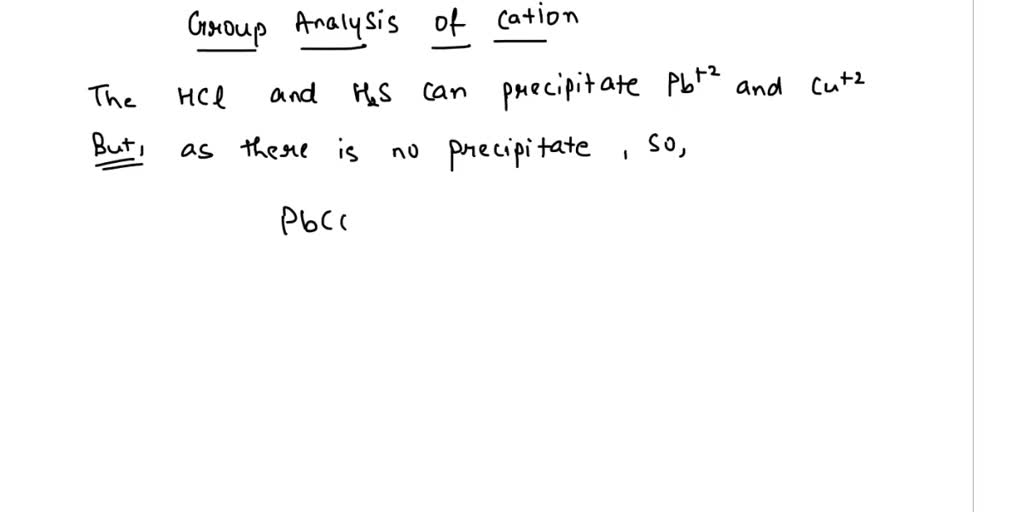 Group Analysis of Cation
The HCl and H2S can precipitate Pb+2 and Cu+2
But, as there is no precipitate, so,
PbC(